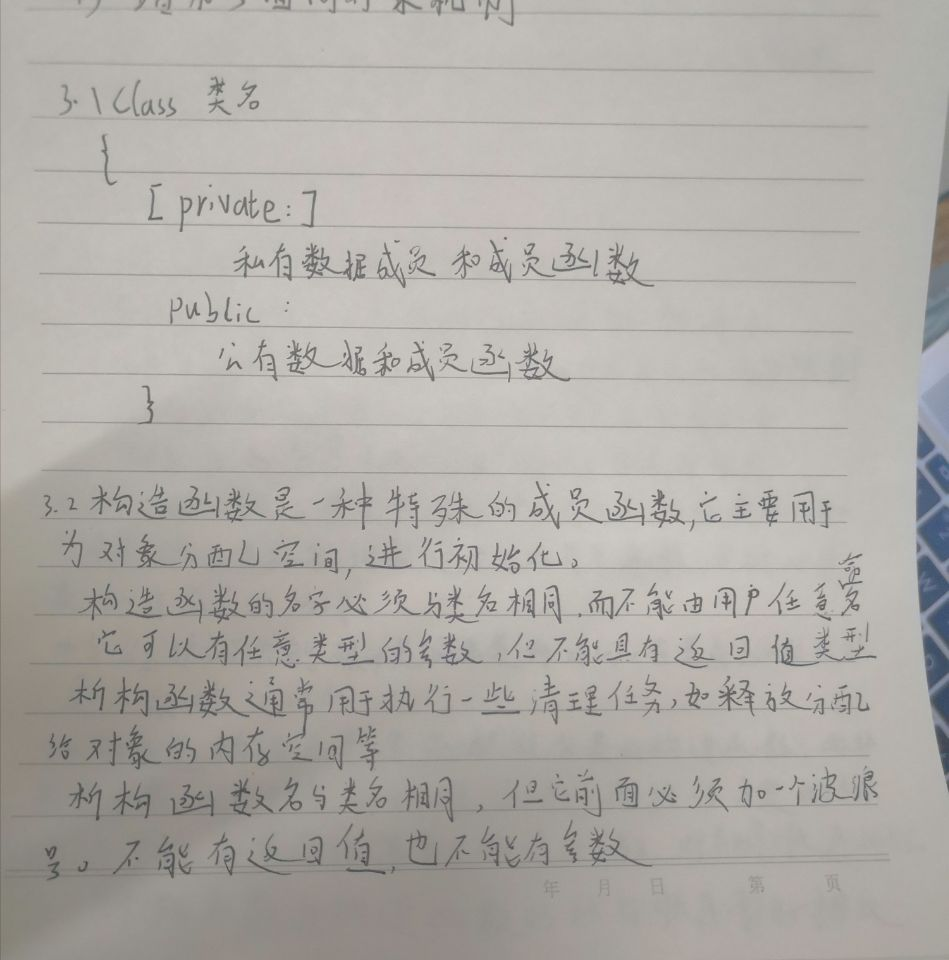 3.1 Class 类名
{
[private:]
私有数据成员和成员函数
public:
公有数据和成员函数
}
3.2 构造函数是一种特殊的成员函数,它主要用于
为对象分配空间,进行初始化。
构造函数的名字必须与类名相同,而不能由用户任意命名
它可以有任意类型的参数,但不能具有返回值类型
析构函数通常用于执行一些清理任务,如释放分配
给对象的内存空间等
析构函数名与类名相同,但它前面必须加一个波浪
号。不能有返回值,也不能有参数
年 月 日 第 页